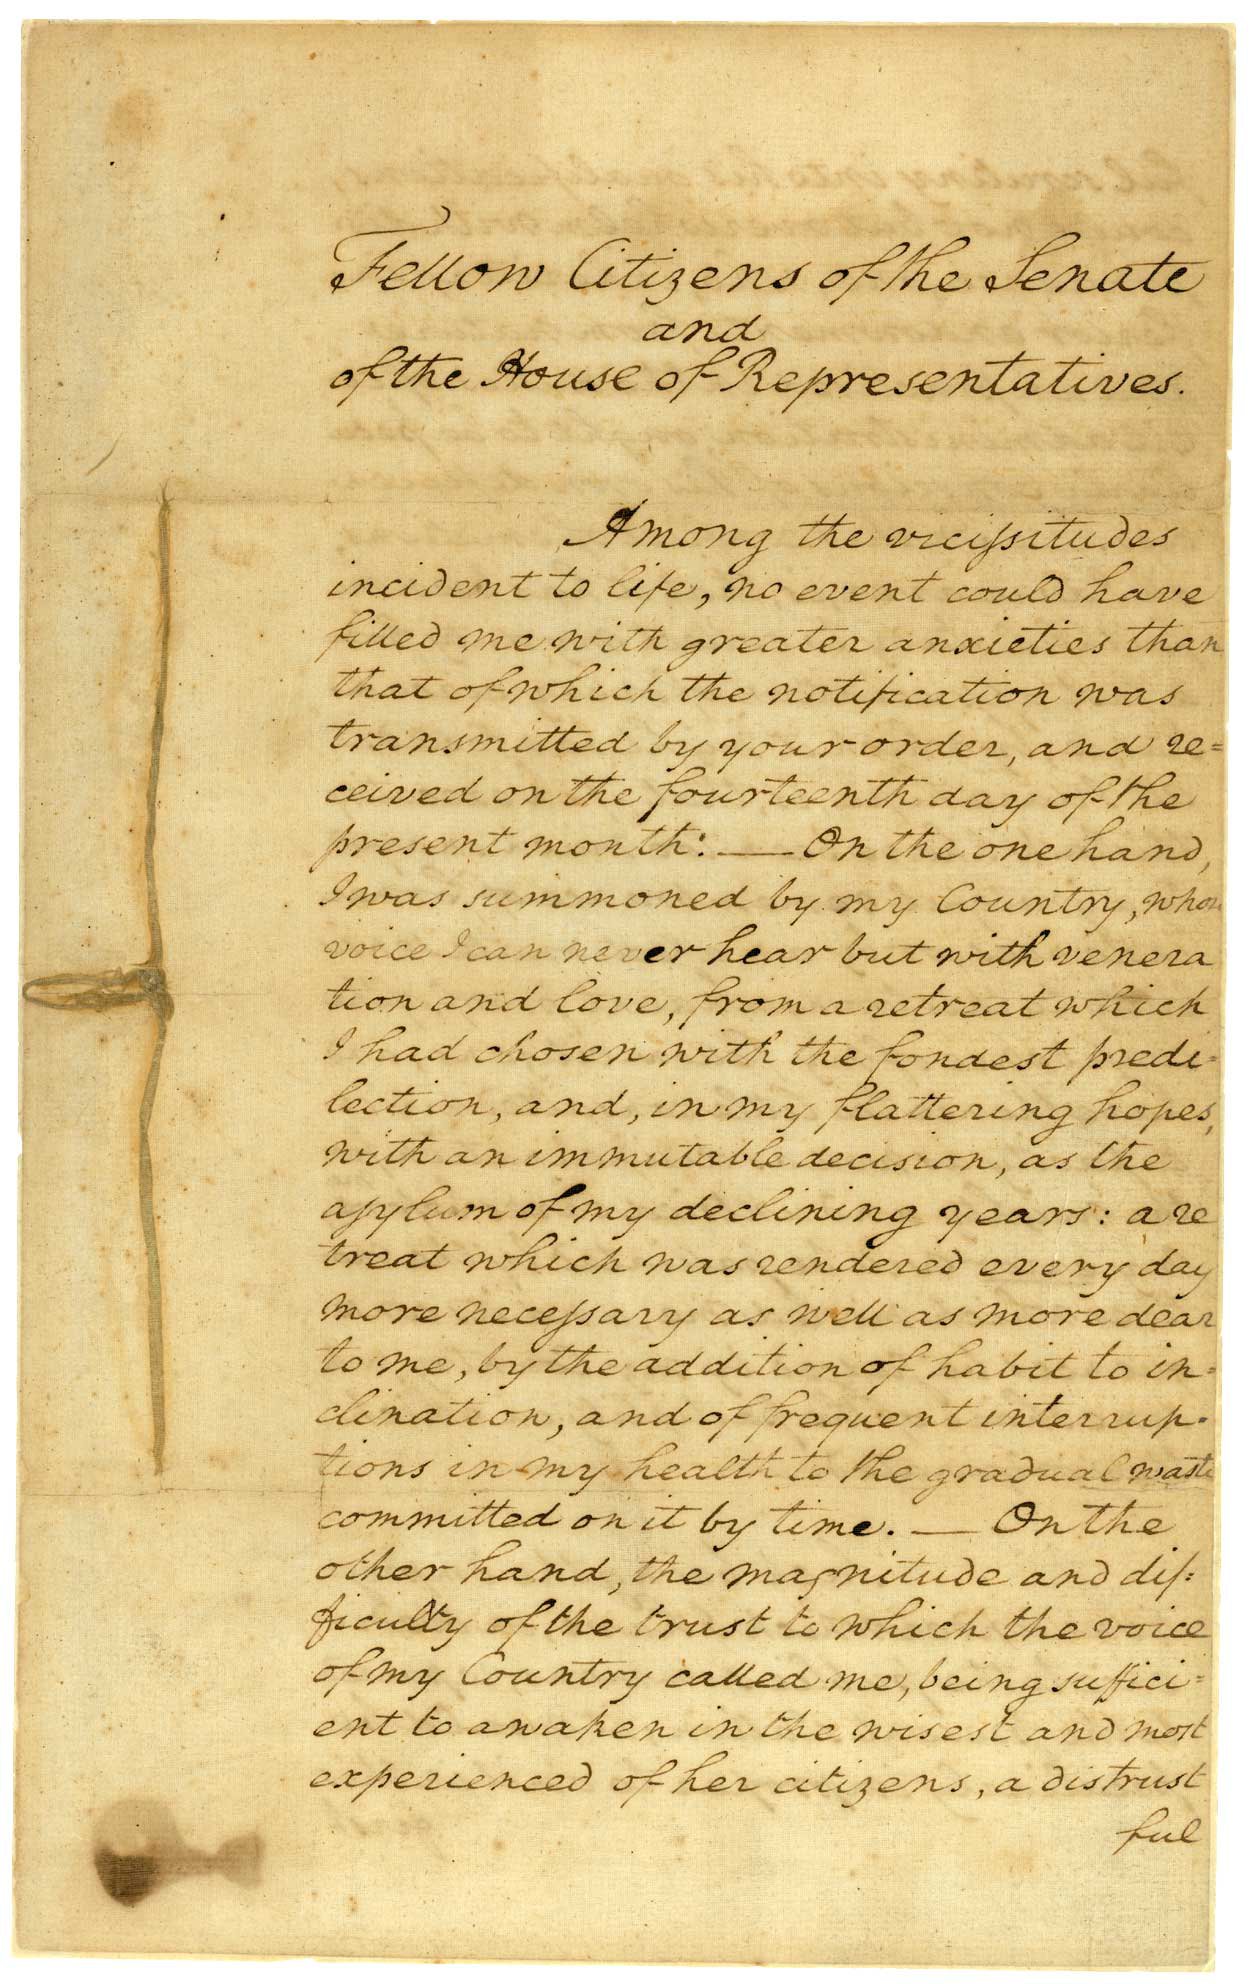 Fellow Citizens of the Senate
and
of the House of Representatives.
Among the viciſsitudes
incident to life, no event could have
filled me with greater anxieties than
that of which the notification was
transmitted by your order, and re=
ceived on the fourteenth day of the
present month: — On the one hand,
I was summoned by my Country, whose
voice I can never hear but with venera
tion and love, from a retreat which
I had chosen with the fondest predi=
lection, and, in my flattering hopes,
with an immutable decision, as the
asylum of my declining years: a re
treat which was rendered every day
more neceſsary as well as more dear
to me, by the addition of habit to in=
clination, and of frequent interrup-
tions in my health to the gradual waste
committed on it by time. — On the
other hand, the magnitude and dif=
ficulty of the trust to which the voice
of my Country called me, being suffici=
ent to awaken in the wisest and most
experienced of her citizens, a distrust
ful